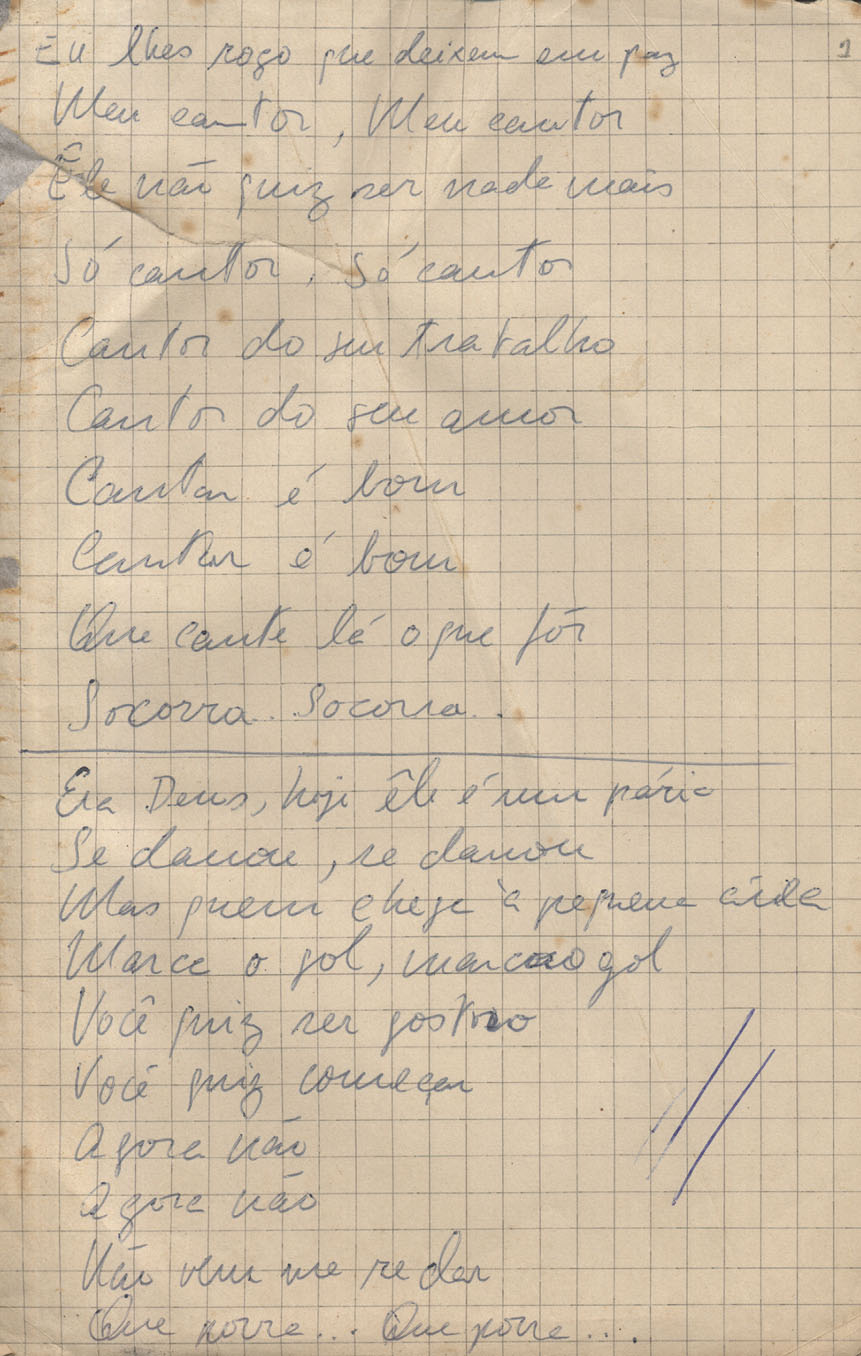 1
Eu lhes rogo que deixem em paz
Meu cantor, Meu cantor
Êle não quiz ser nada mais
Só cantor. Só cantor
Cantor do seu trabalho
Cantor do seu amor
Cantar é bom
Cantar é bom
Que cante lá o que fôr
Socorra.. Socorra..
Era Deus, hoje êle é um pária
Se danou, se danou
Mas quem chega à pequena área
Marca o gol, marca o gol
Você quiz ser gostoso
Você quiz começar
Agora não
Agora não
Não vem me se dar
Que porre... Que porre....